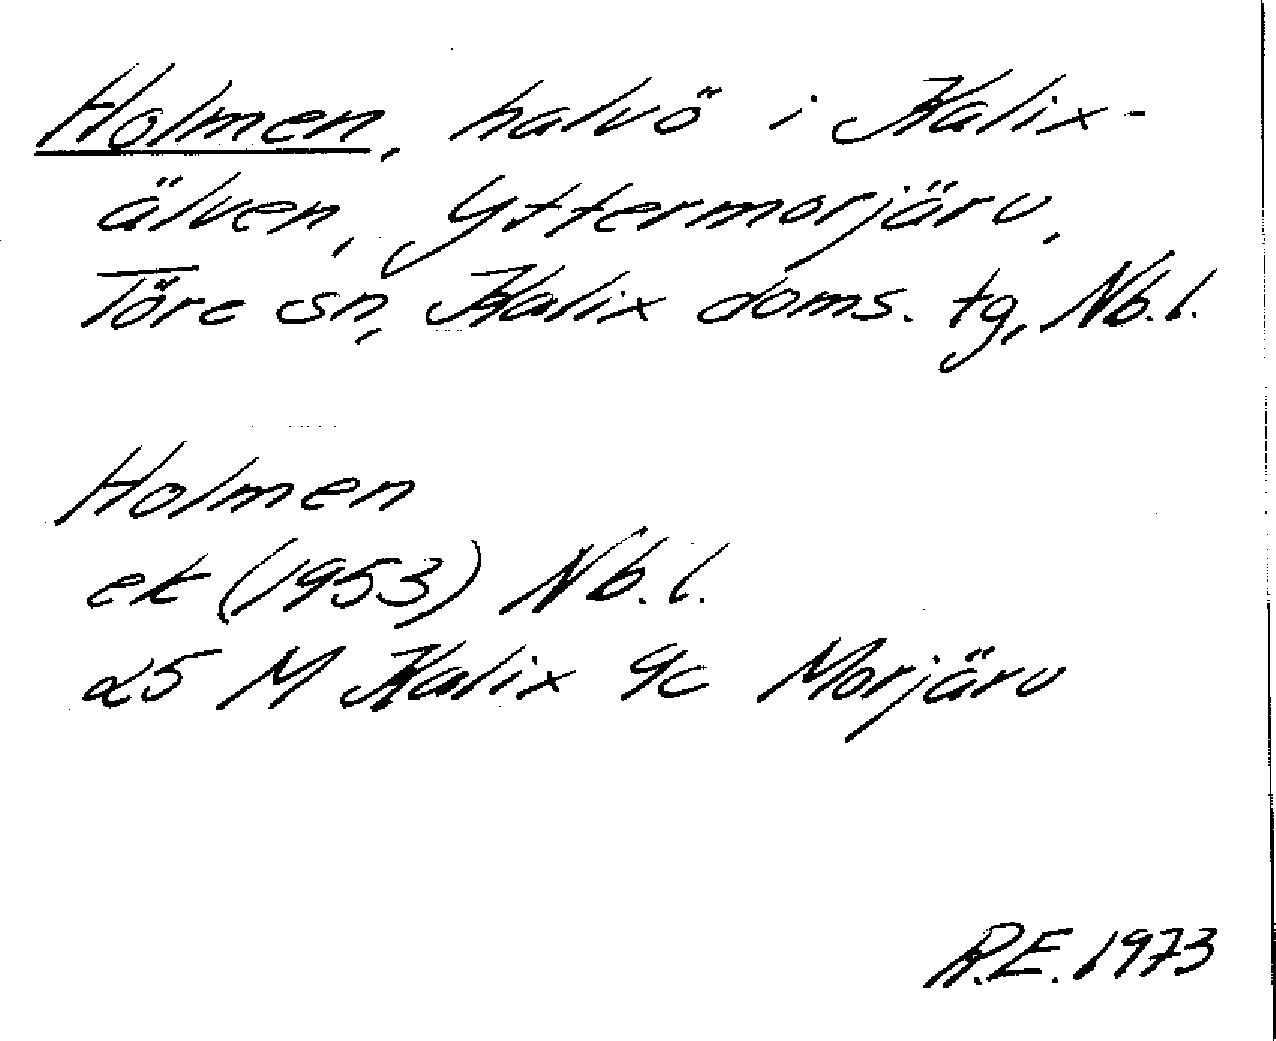 Holmen, halvö i Kalix-
älven, Yttermorjärv,
Töre sn, Kalix doms. tg, Nb. l.
Holmen
ek (1953) Nb. l.
25 M Kalix 9c Morjärv
R.E. 1973